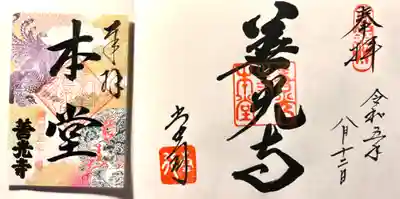 奉拝
本堂
善光寺
奉拝
令和五年
八月十二日
善光寺